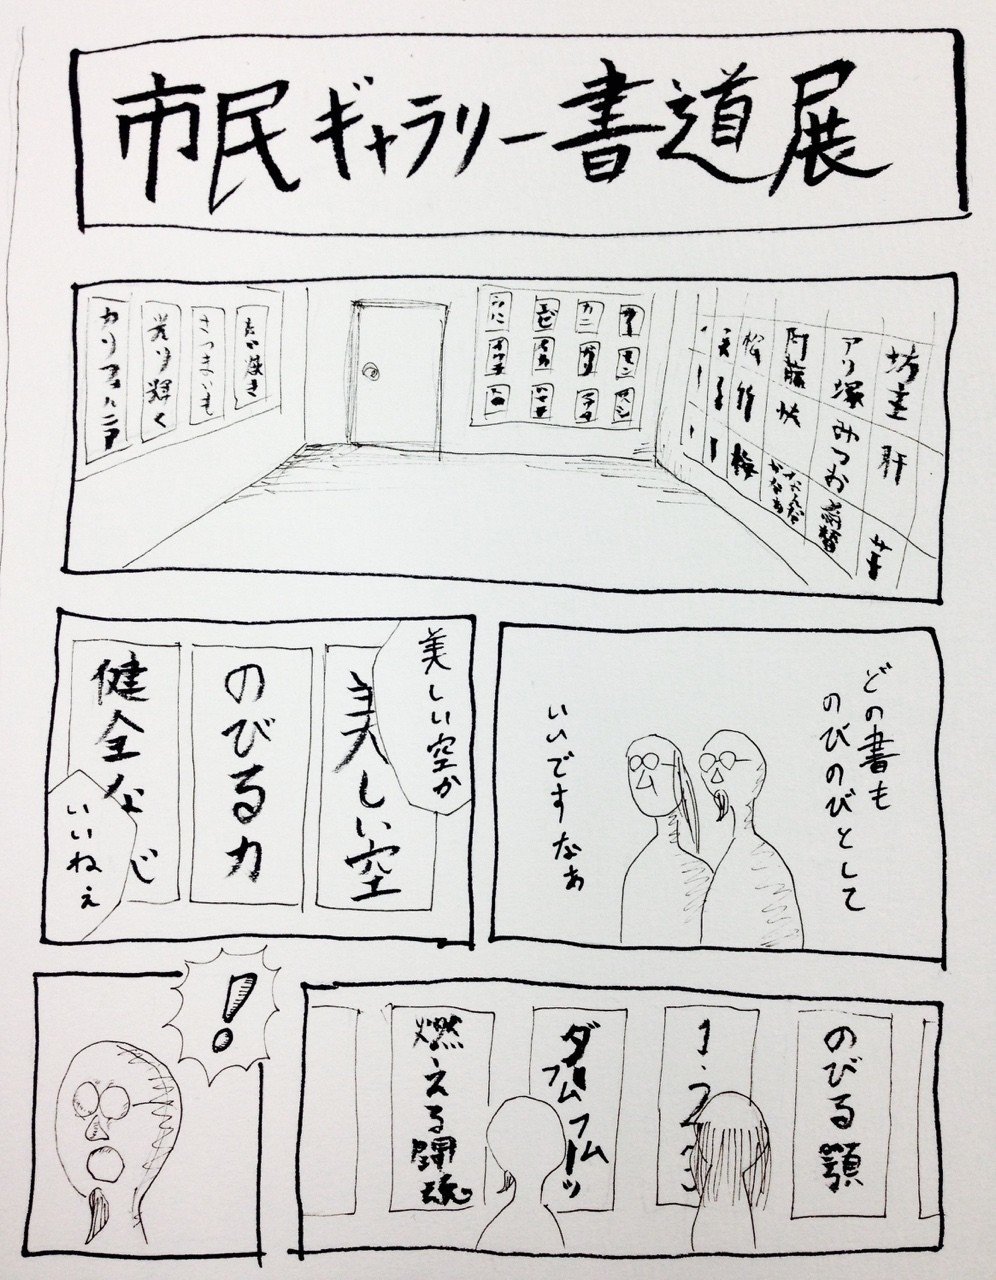 市民ギャラリー書道展
坊主
肝
芋
アリ塚
みつお
阿藤
快
なんだ
かなあ
松
竹
梅
カニ
エビ
うに
イカ
たい焼き
さつまいも
光り輝く
カリフォルニア
どの書も
のびのびとして
いいですなあ
美しい空か
美しい空
のびる力
健全な
じ
いいねぇ
のびる顎
1.2
ダームフムフーッ
燃える闘魂
!